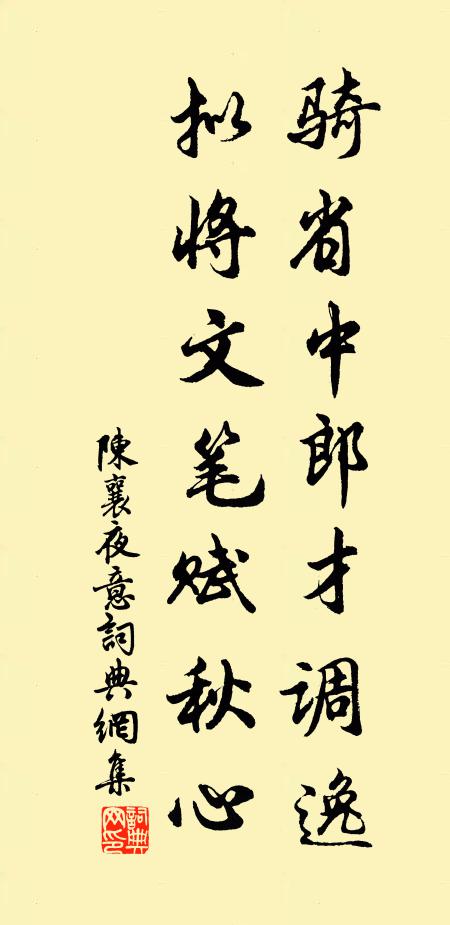 骑省中郎才调逸
拟将文笔赋秋心
陳襄夜意詞典網集
詞典網印